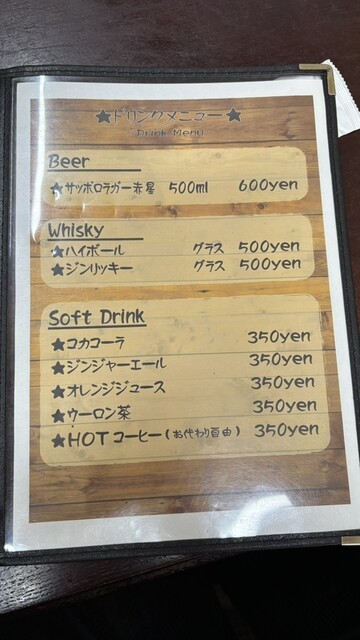 ★ドリンクメニュー★
Drink Menu
Beer
★サッポロラガー赤星 500ml 600yen
Whisky
★ハイボール グラス 500yen
★ジンリッキー グラス 500yen
Soft Drink
★コカコーラ 350yen
★ジンジャーエール 350yen
★オレンジジュース 350yen
★ウーロン茶 350yen
★HOTコーヒー(お代わり自由) 350yen